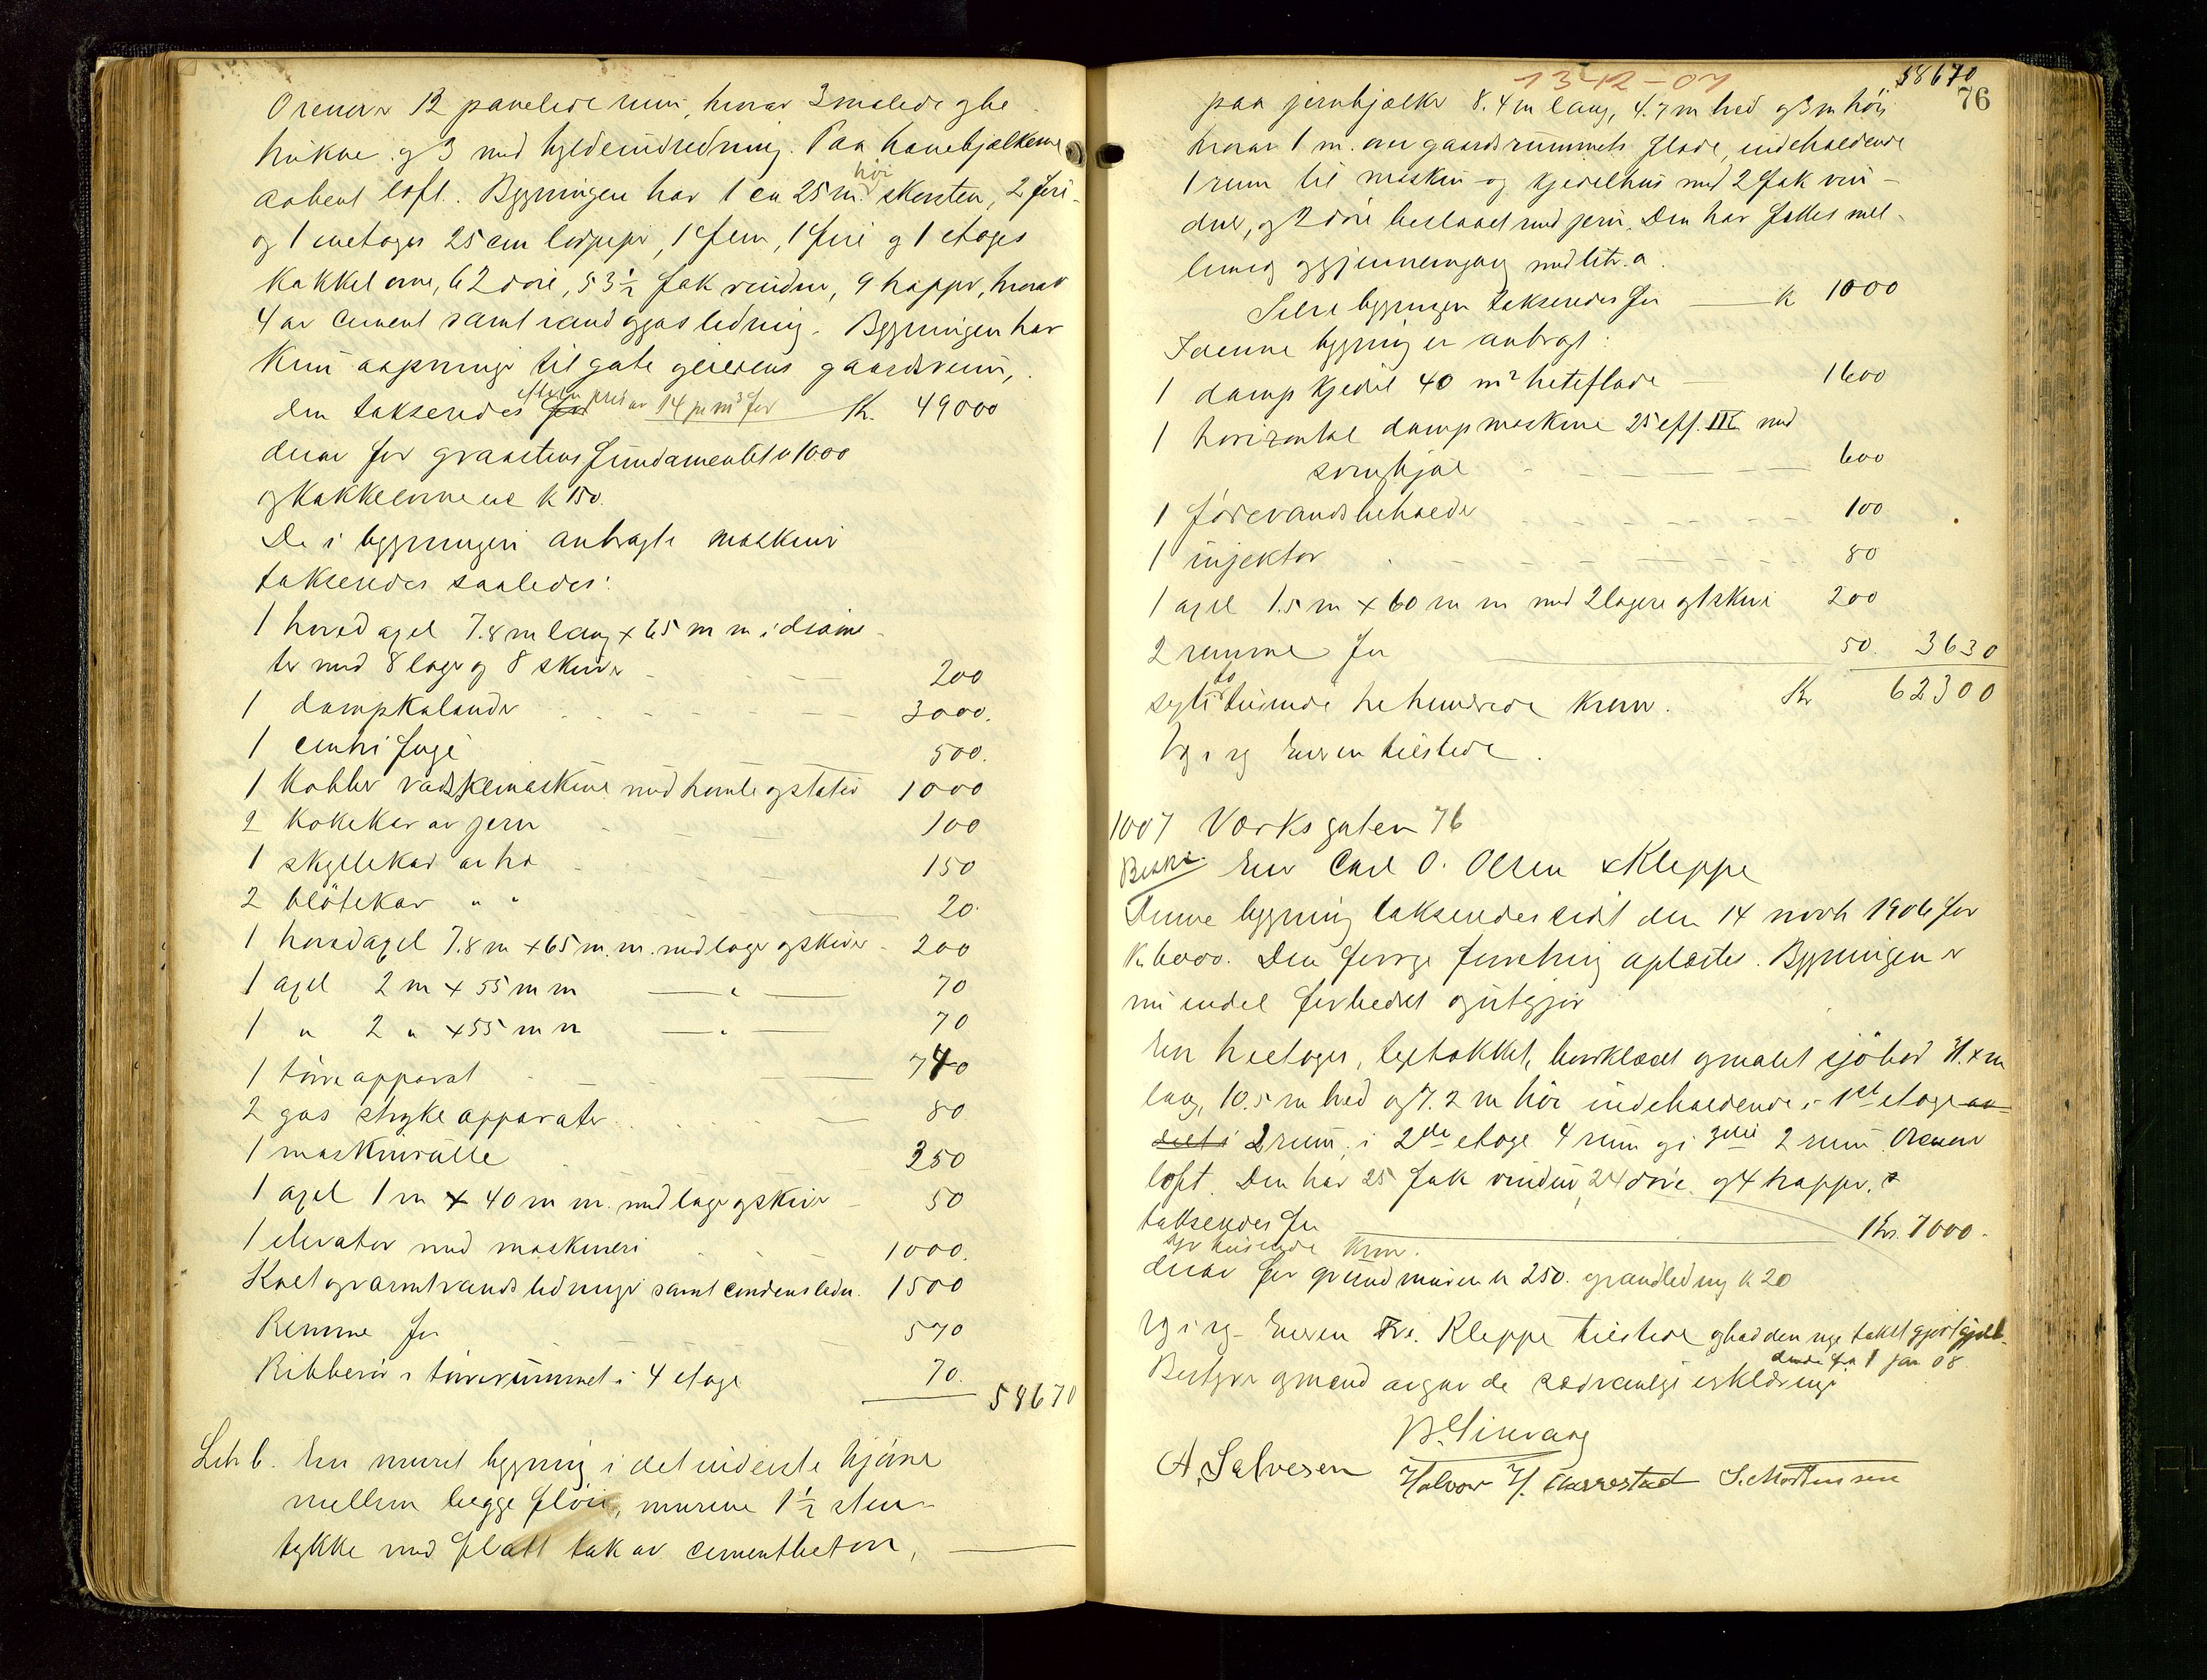 Orenover 12 panelede rum, hvorav 3 malede og be
trukne og 3 med hyldeindredning. Paa hanebjælkerne
aabent loft. Bygningen har 1 ca 25 m. høi skorsten, 2 fire-
og 1 enetages 25 cm lodpiper, 1 fem, 1 fire og 1 etages
kakkelovne, 62 døre, 53 ½ fak vinduer, 9 trapper, hvorav
4 av cement samt vand og gasledning. Bygningen har
kun aapninger til gate og eierens gaardsrum,
den takseredes efter en pris av 14 pr m³ for Kr. 49000
derav for graastensfundamentet kr 1000
og kakkelovnene k 150.
De i bygningen anbragte maskiner
takseredes saaledes:
1 hovedaxel 7.8 m lang x 65 m m i diame-
ter med 8 lager og 8 skiver 200
1 dampkalander 3000.
1 centrifuge 500.
1 dobbelt vadskemaskine med tromle og stativ 1000
2 kokekar av jern 100
1 skyllekar av træ 150
2 bløtekar " " 20.
1 hovedaxel 7.8 m x 65 m. m. med lager og skiver 200
1 axel 2 m x 55 m m — " — 70
1 " 2 " x 55 m m — " — 70
1 tørreapparat 740
2 gas strykeapparater 80
1 maskinrulle 350
1 axel 1 m x 40 m m. med lager og skiver 50
1 elevator med maskineri 1000.
Kolt og varmtvandsledninger samt condensledn. 1500
Remme for 570
Ribberør i tørrerummet i 4 etage 70.
58670
Litr b. En muret bygning i det inderste hjørne
mellem begge fløie, murene 1 ½ sten
tykke med flatt tak av cementbeton,
13-12-07
58670
76
paa jernbjælker 8.4 m lang, 4.7 m bred og 3 m høi
hvorav 1 m. over gaardsrummets flade, indeholdende
1 rum til maskin- og kjedelhus med 2 fak vin-
duer, og 2 døre beslaaet med jern. Den har fælles mel-
lemvæg og gjennemgang med litr. a.
Selve bygningen takseredes for k 1000
I denne bygning er anbragt:
1 dampkjedel 40 m² heteflade 1600
1 horizontal dampmaskine 25 eff. HK med
svinghjul 600
1 fødevandsbeholder 100
1 injektor 80
1 axel 1.5 m x 60 m m med 2 lagere og 1 skive 200
2 remme for 50. 3630
sexti to tusinde trehundrede kroner. Kr 62300
Vg i rg Eieren tilstede.
1007 Værksgaten 76
Beskr. Eier Carl O. Olsen & Kleppe
Denne bygning takseredes sidst den 14 novbr 1906 for
k. 6000. Den forrige forretning oplæstes. Bygningen er
nu endel forbedret og utgjør
En treetages, tegltakket, bordklædt og malet sjøbod 31. x m
lang, 10.5 m bred og 7.2 m høi indeholdende i 1ste etage
2 rum, i 2den etage 4 rum og i 3die 2 rum. Ovenover
loft. Den har 25 fak vinduer, 24 døre og 4 trapper,
takseredes for Kr. 7000.
syv tusinde kroner.
derav for grundmuren kr 250. og vandledning k 20
Vg i rg. Eieren Fr. Kleppe tilstede og bad den nye takst gjort gjæl-
dende fra 1 jan 08.
Bestyrer og mænd avgav de sædvanlige erklæringer
A. Salvesen Halvor H. Aarrestad S. Mortensen